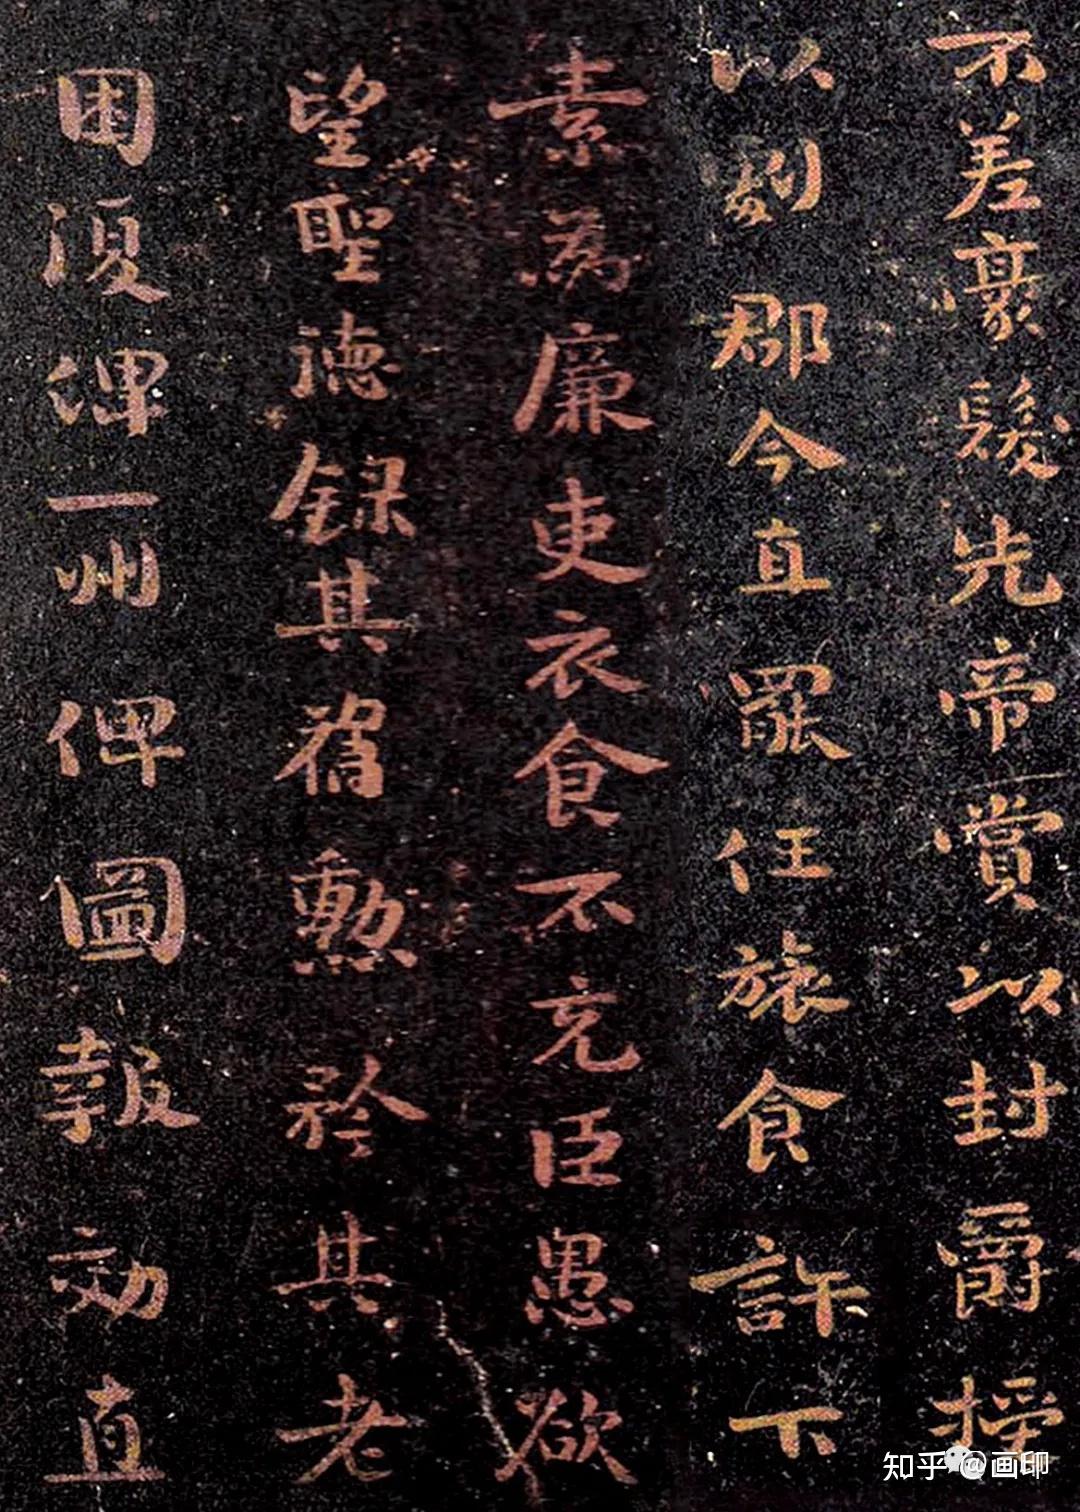 不差豪髮先帝賞以封爵授
以劇郡今直罷任旅食許下
素為廉吏衣食不充臣愚欲
望聖德錄其舊勳矜其老
困復俾一州俾圖報効直
知乎 @画印